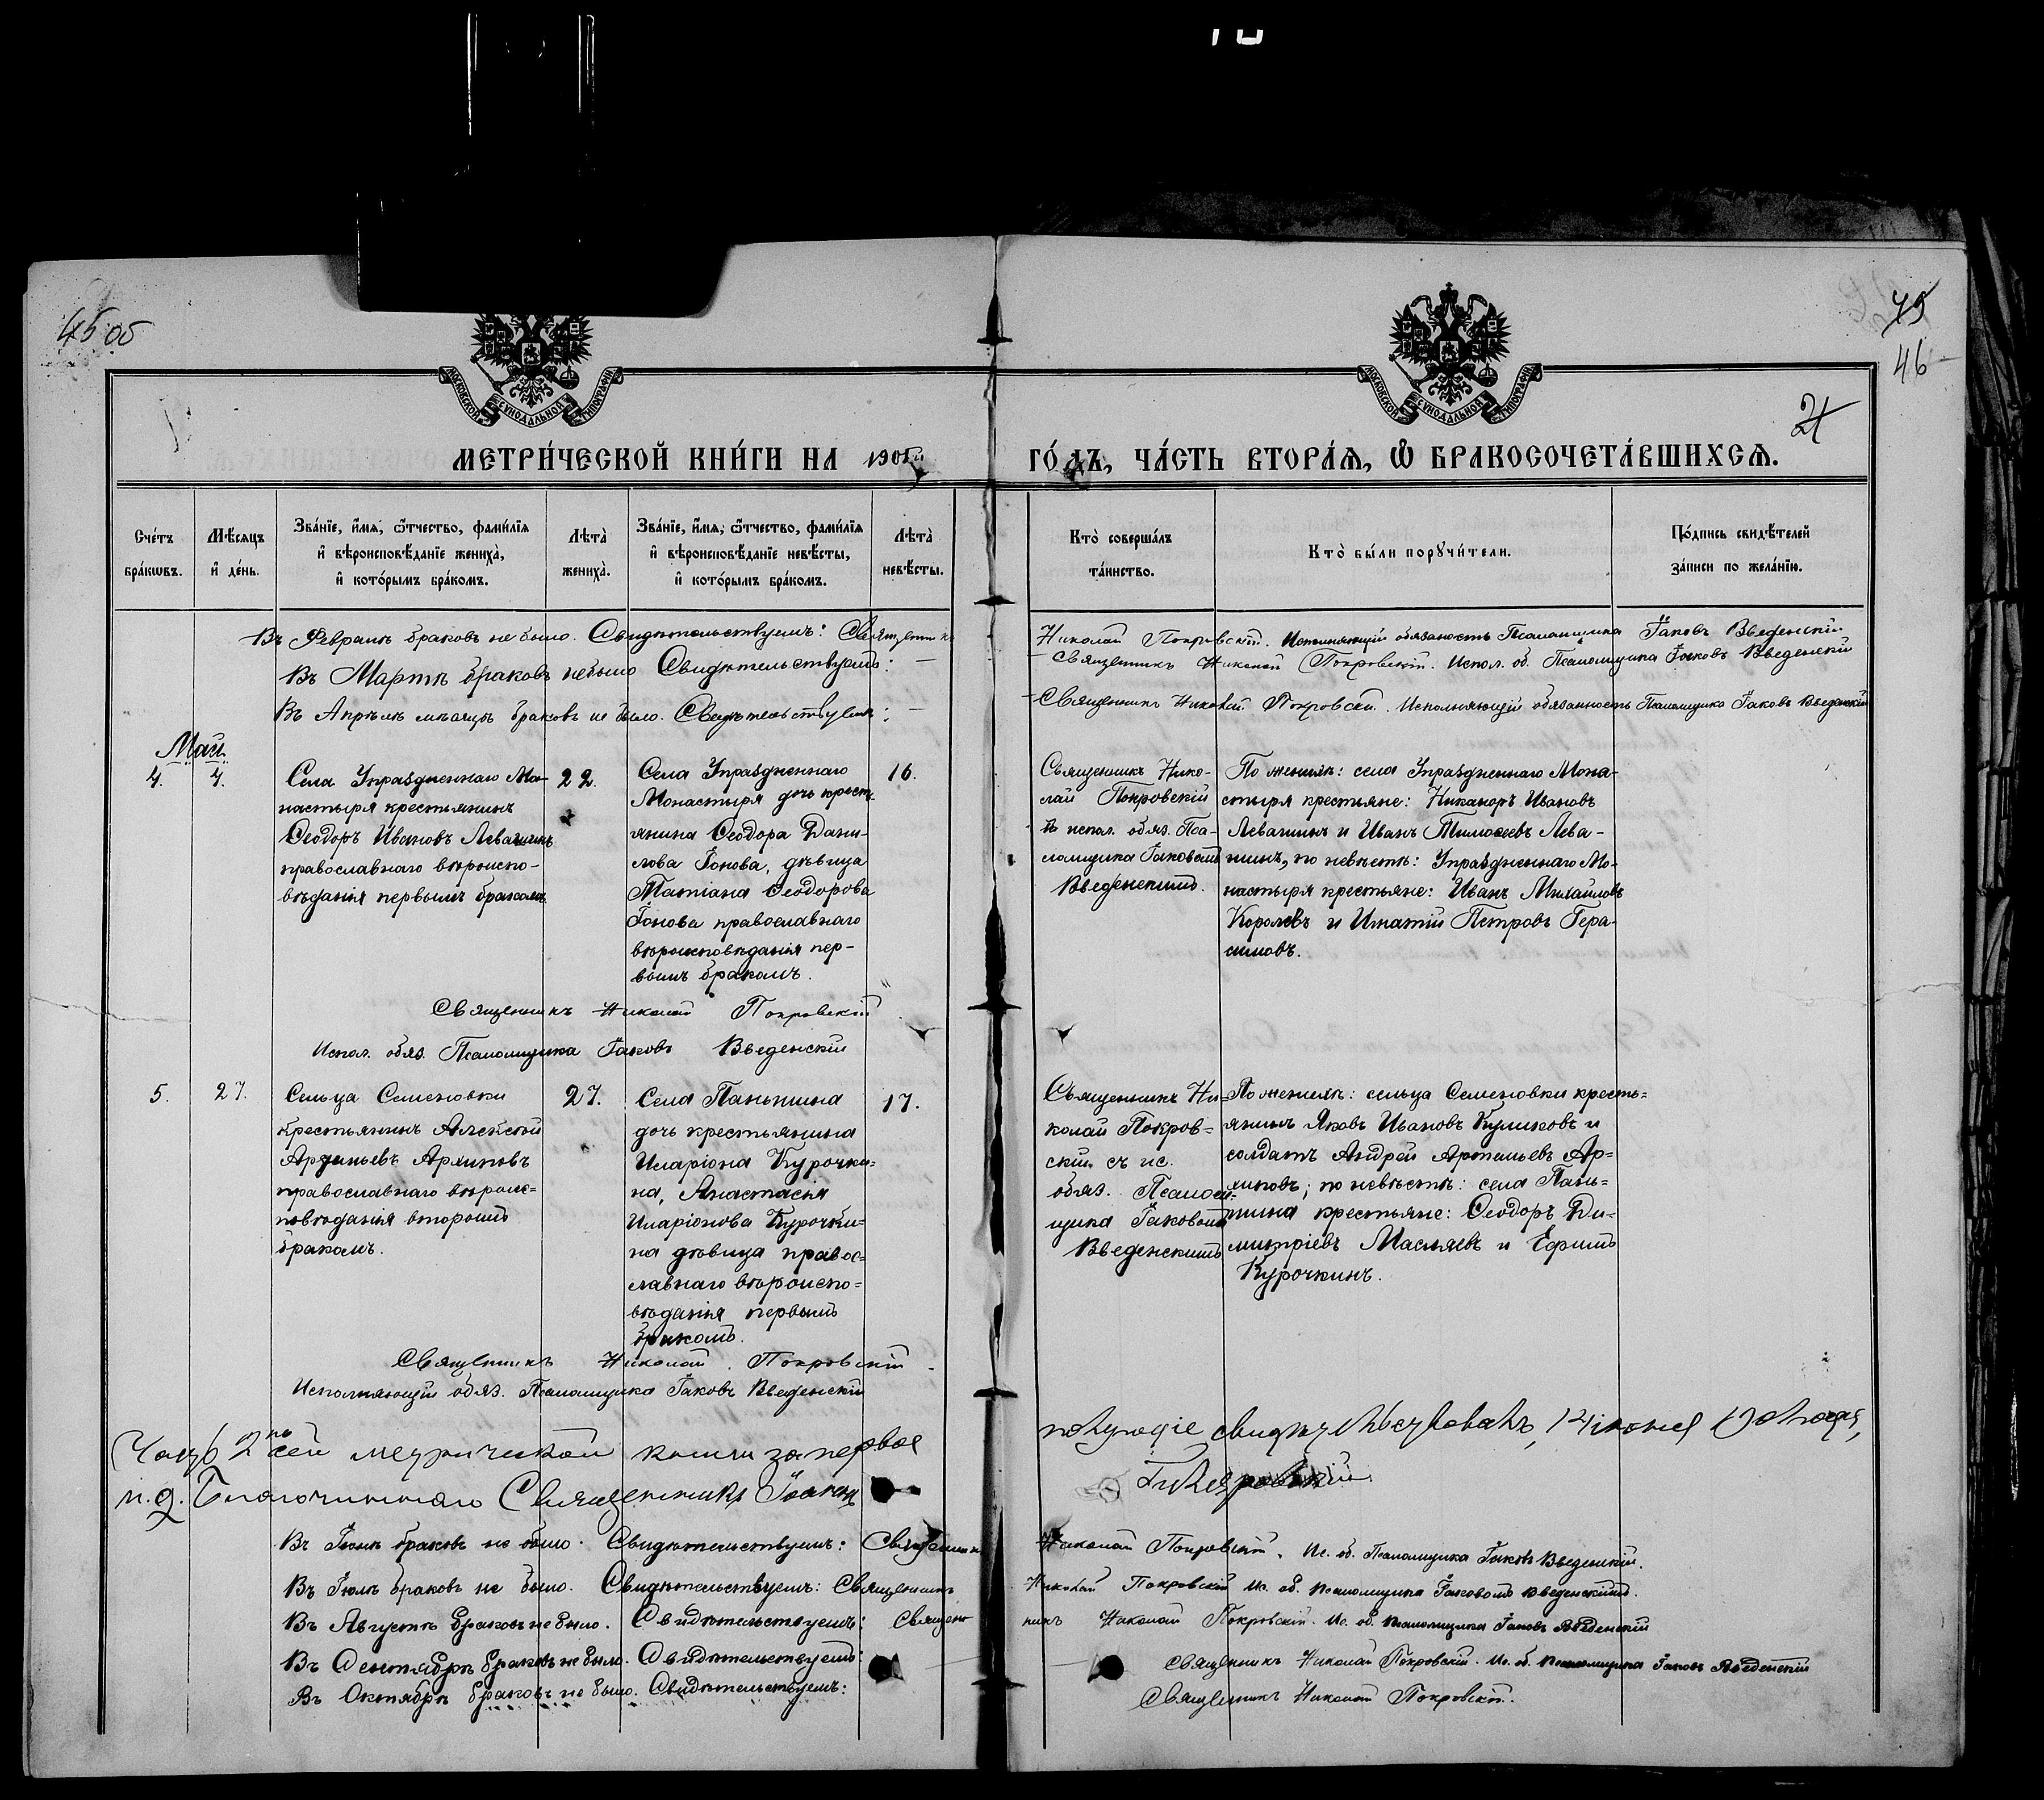 45 об
75
46
21
МОСКОВСКОЙ СУНОДАЛЬНОЙ ТИПОГРАФІИ
МОСКОВСКОЙ СУНОДАЛЬНОЙ ТИПОГРАФІИ
МЕТРИ́ЧЕСКОЙ КНИ́ГИ НА 1901й ГО́ДЪ, ЧА́СТЬ ВТОРА́Я, Ѿ БРАКОСОЧЕТА́ВШИХСЯ.
Сче́тъ
бра́кѡвъ.
Мѣ́сяцъ
и҆ де́нь.
Зва́нїе, и҆́мя, ѻ҆́тчество, фами́лїя
и҆ вѣроисповѣ́данїе жениха̀,
и҆ кото́рымъ бра́комъ.
Лѣта̀
жениха̀.
Зва́нїе, и҆́мя, ѻ҆́тчество, фами́лїя
и҆ вѣроисповѣ́данїе невѣ́сты,
и҆ кото́рымъ бра́комъ.
Лѣта̀
невѣ́сты.
Кто̀ соверша́лъ
та́инство.
Кто̀ бы́ли порꙋчи́тели.
По́дпись свидѣ́телей
за́писи по жела́нїю.
Въ Февралѣ браковъ не было. Свидѣтельствуемъ: Священникъ Николай Покровскій. Исполняющій обязаность Псаломщика Іаковъ Введенскій
Въ Мартѣ браковъ небыло Свидѣтельствуемъ: — Священникъ Николай Покровскій. Испол. об. Псаломщика Іаковъ Введенскій
Въ Апрѣлѣ мѣсяцѣ браковъ не было. Свидѣтельствуемъ: — Священникъ Николай Покровскій. Исполняющій обязанность Псаломщика Іаковъ Введенскій
Май.
4.
4.
Села Упраздненнаго Мо-
настыря крестьянинъ
Ѳеодоръ Ивановъ Левашинъ
православнаго вѣроиспо-
вѣданія первымъ бракомъ
22.
Села Упраздненнаго
Монастыря дочь кресть-
янина Ѳеодора Дани-
лова Іонова, дѣвица
Татіана Ѳеодорова
Іонова православнаго
вѣроисповѣданія пер-
вымъ бракомъ.
16.
Священникъ Нико-
лай Покровскій
испол. обяз. Пса-
ломщика Іаковомъ
Введенскимъ.
По женихѣ: села Упраздненнаго Мона-
стыря крестьяне: Никаноръ Ивановъ
Левашинъ и Иванъ Тимоѳеевъ Лева-
шинъ, по невѣстѣ: Упраздненнаго Мо-
настыря крестьяне: Иванъ Михайловъ
Королевъ и Игнатій Петровъ Гера-
симовъ.
Священникъ Николай Покровскій
Испол. обяз. Псаломщика Іаковъ Введенскій
5.
27.
Сельца Семеновки
крестьянинъ Алексѣй
Архиповъ
православнаго вѣроис=
повѣданія вторымъ
бракомъ.
27.
Села Паньшина
дочь крестьянина
Иларіона Курочки=
на, Анастасія
Иларіонова Курочки=
на дѣвица правос=
лавнаго вѣроиспо=
вѣданія первымъ
бракомъ.
17.
Священникъ Ни=
колай Покров=
скій съ ис.
обяз. Псалом=
щика Іаковомъ
Введенскимъ
По женихѣ: сельца Семеновки кресть=
янинъ Яковъ Ивановъ Куликовъ и
солдатъ Андрей Артемьевъ Ар=
хиповъ; по невѣстѣ: села Пань=
шина крестьяне: Ѳеодоръ Ди=
митріевъ Масляевъ и Ефимъ
Курочкинъ.
Священникъ Николай Покровскій
Исполняющій обяз. Псаломщика Іаковъ Введенскій
Часть 2ю сей метрической книги за первое полугодіе свидѣтельствовалъ, 14 іюня 1901 года,
и.д. Благочиннаго Священникъ Іоаннъ
Въ Іюнѣ браковъ не было. Свидѣтельствуемъ: Священникъ Николай Покровскій. Ис. об. Псаломщика Іаковъ Введенскій.
Въ Іюлѣ браковъ не было. Свидѣтельствуемъ: Священникъ Николай Покровскій Ис. об. псаломщика Іаковомъ Введенскимъ
Въ Августѣ браковъ не было. Свидѣтельствуемъ: Священникъ Николай Покровскій. Ис. об. псаломщика Іаковъ Введенскій
Въ Сентябрѣ браковъ не было. Свидѣтельствуемъ: Священникъ Николай Покровскій. Ис. об. псаломщика Іаковъ Введенскій
Въ Октябрѣ браковъ не было. Свидѣтельствуемъ: Священникъ Николай Покровскій.